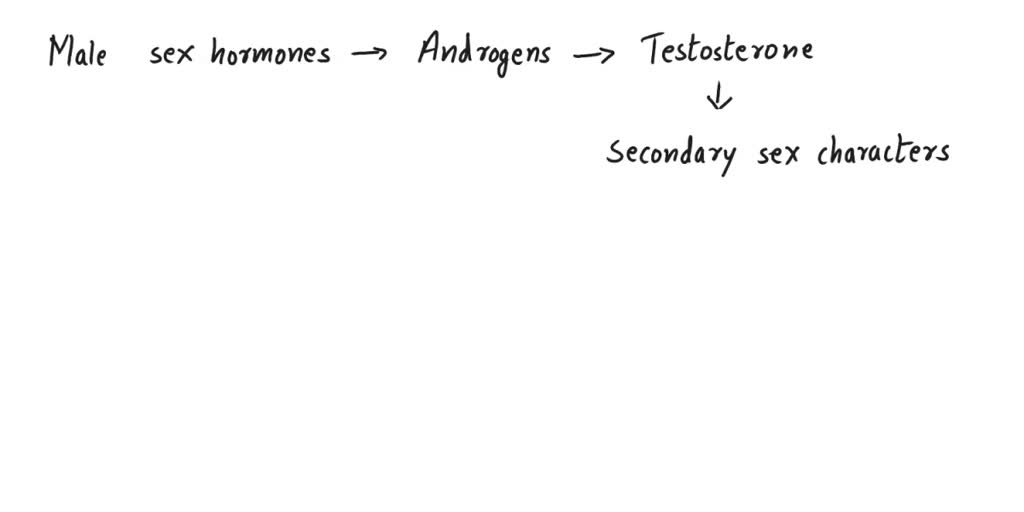 Male sex hormones → Androgens → Testosterone
↓
Secondary sex characters